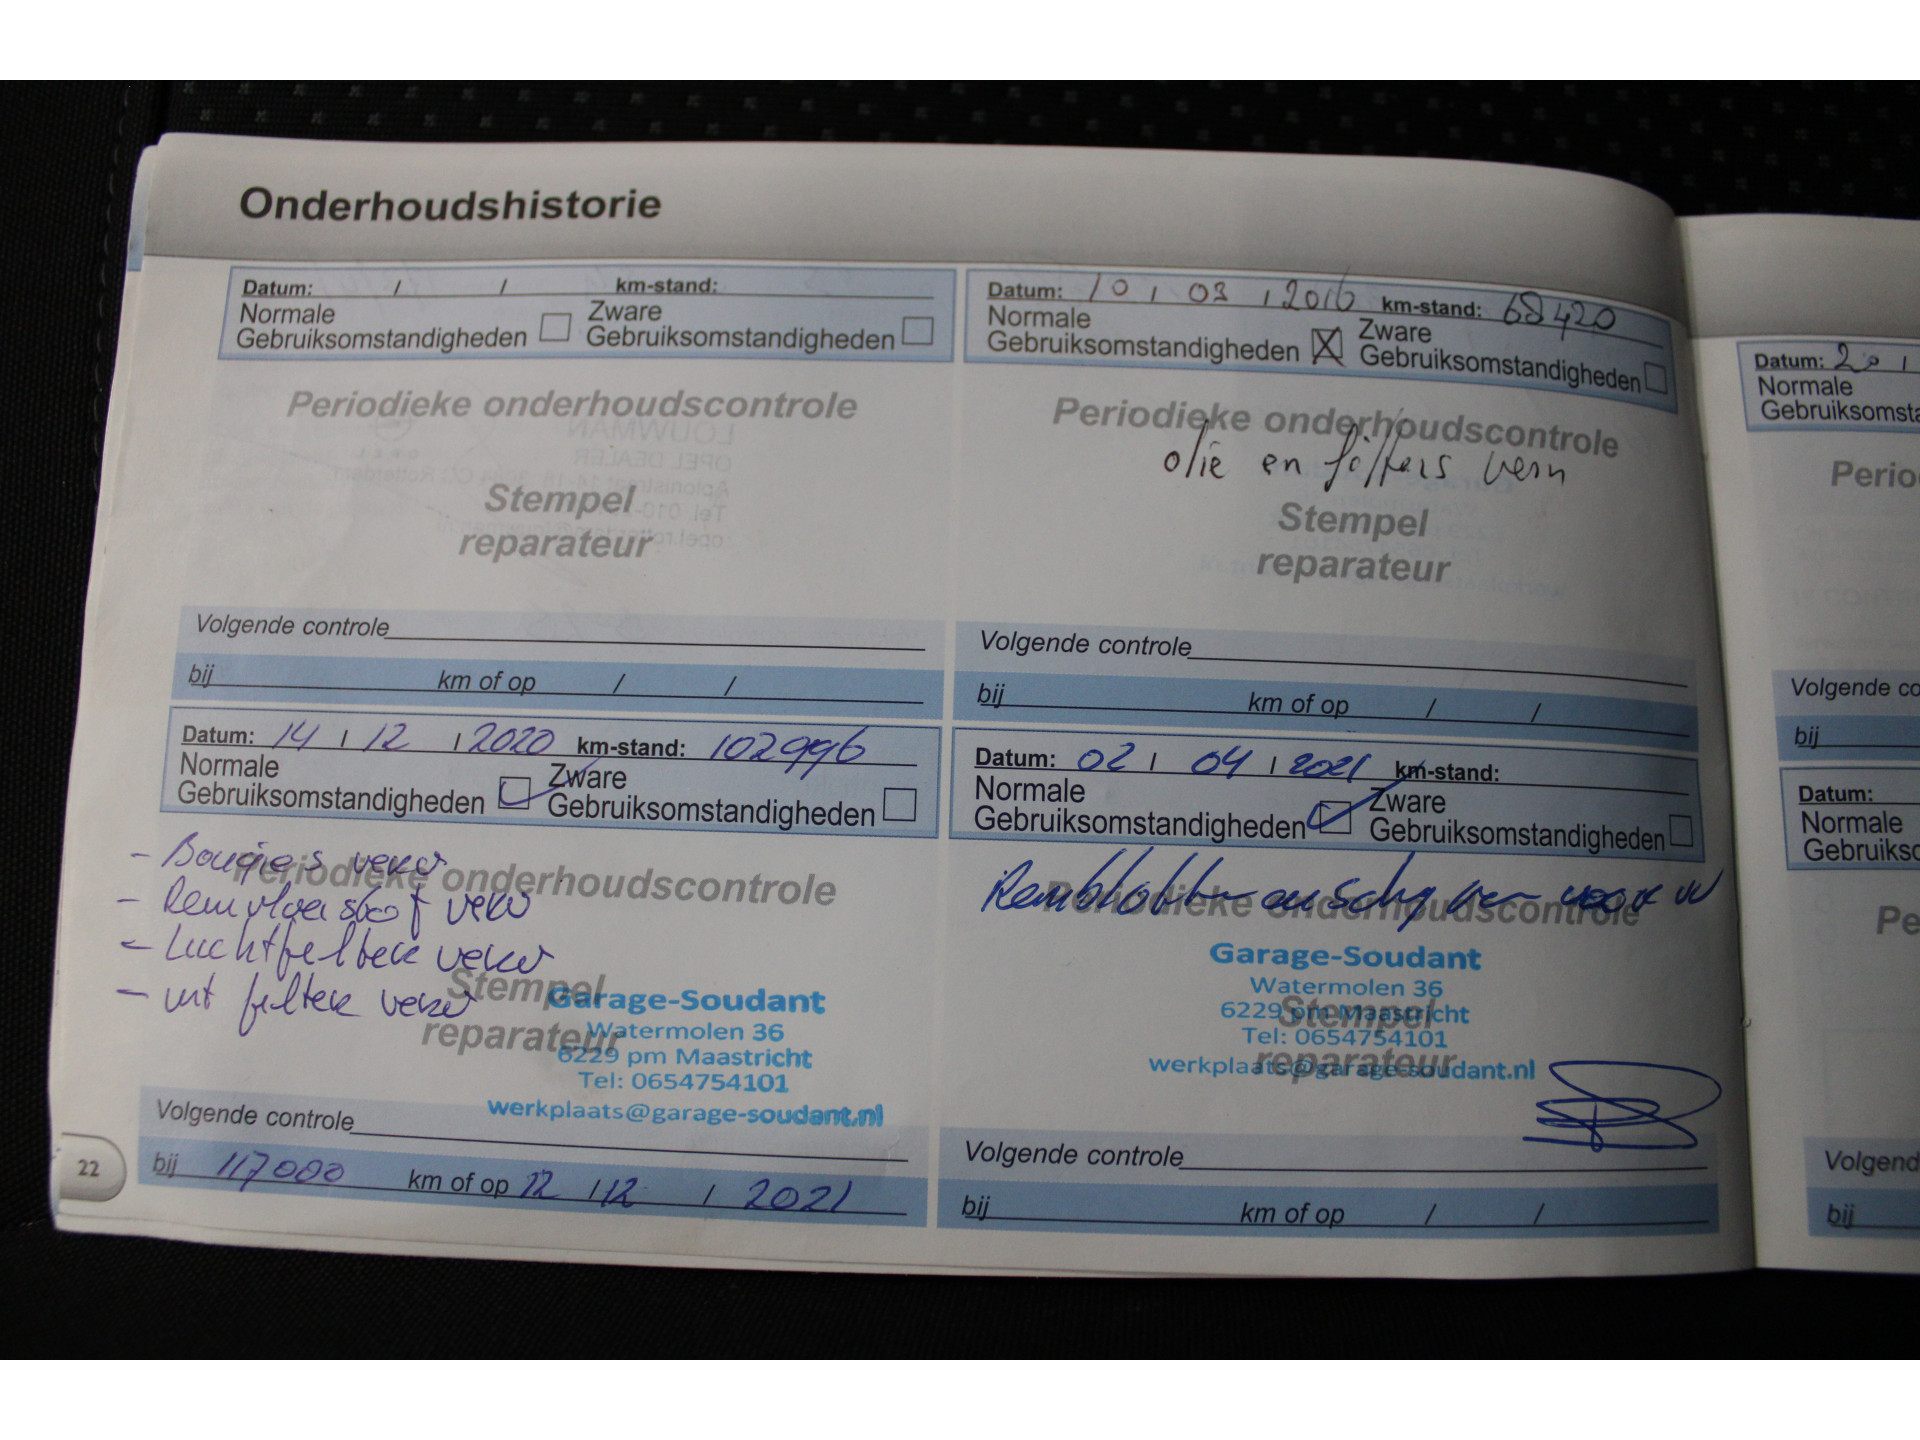 Onderhoudshistorie
Datum: / / km-stand:
Normale Gebruiksomstandigheden Zware Gebruiksomstandigheden
Periodieke onderhoudscontrole
Stempel
reparateur
Volgende controle
bij km of op / /
Datum: 10 / 03 / 2016 km-stand: 68420
Normale Gebruiksomstandigheden X Zware Gebruiksomstandigheden
Periodieke onderhoudscontrole
olie en filters vern
Stempel
reparateur
Volgende controle
bij km of op / /
Datum: 14 / 12 / 2020 km-stand: 102996
Normale Gebruiksomstandigheden Zware Gebruiksomstandigheden
Periodieke onderhoudscontrole
- Bougies verv
- Remvloeistof verv
- Luchtfilter verv
- int filter verv
Stempel
reparateur
Garage-Soudant
Watermolen 36
6229 pm Maastricht
Tel: 0654754101
werkplaats@garage-soudant.nl
Volgende controle
bij 117000 km of op 12 / 12 / 2021
Datum: 02 / 04 / 2021 km-stand:
Normale Gebruiksomstandigheden Zware Gebruiksomstandigheden
Periodieke onderhoudscontrole
Remblokken en schijven voor
Garage-Soudant
Watermolen 36
6229 pm Maastricht
Tel: 0654754101
werkplaats@garage-soudant.nl
Stempel
reparateur
Volgende controle
bij km of op / /
22
Datum: 20 /
Normale
Gebruiksomsta
Perio
Volgende co
bij
Datum:
Normale
Gebruiksc
Pe
Volgend
bij